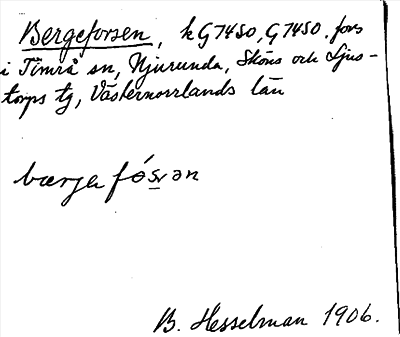 Bergeforsen, kG7450, G7450, fors
i Timrå sn, Njurunda, Sköns och Ljus-
torps tg, Västernorrlands län
bærjafós̱ən
B. Hesselman 1906.